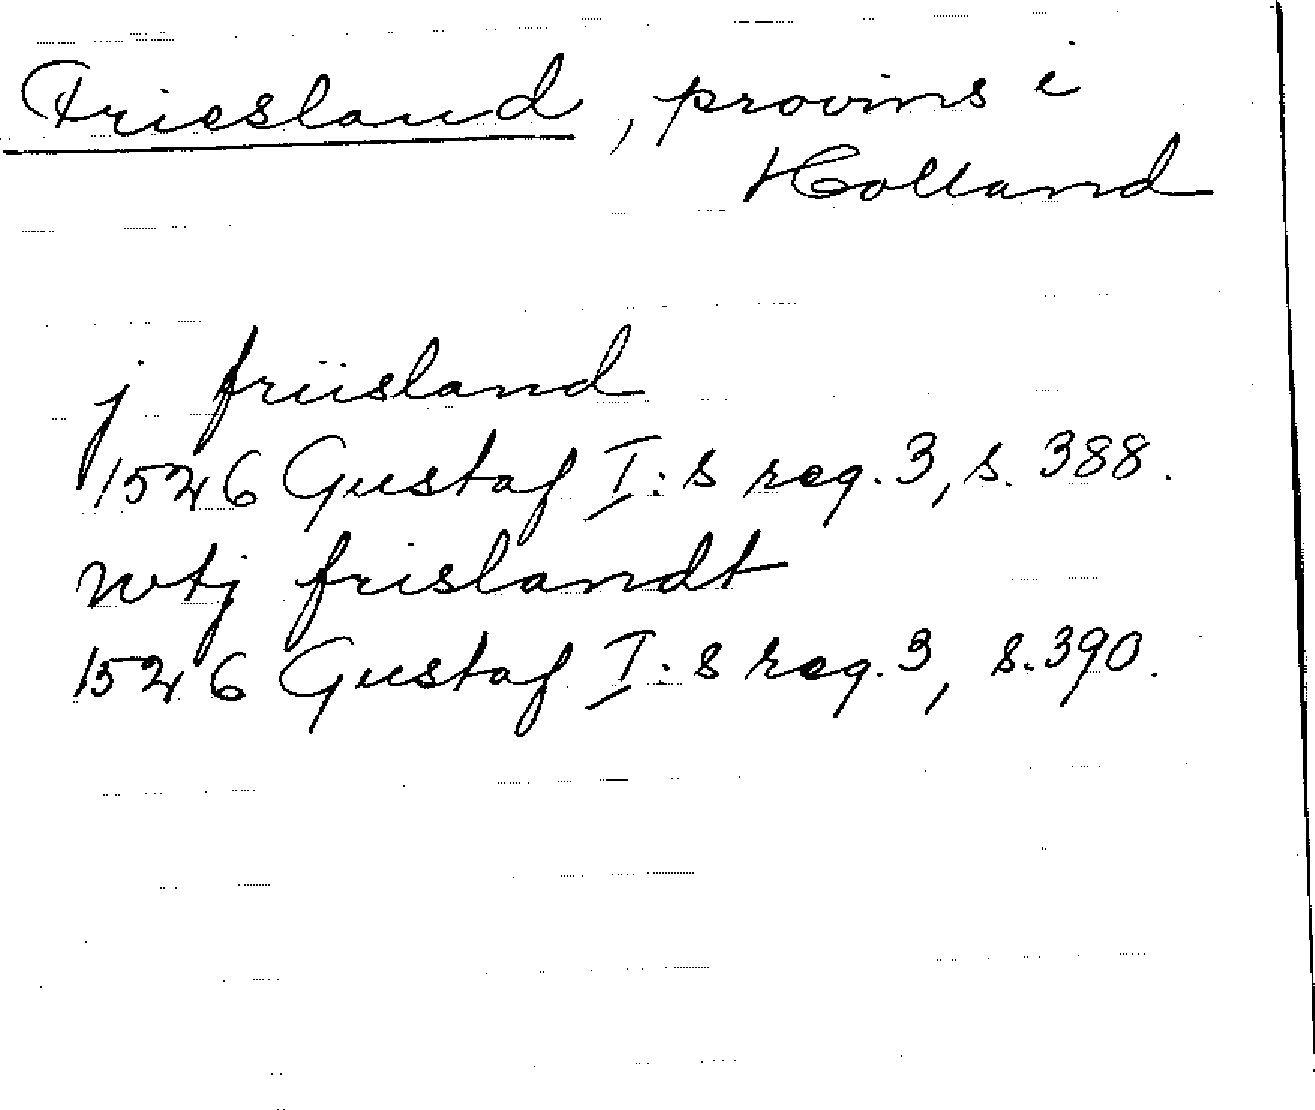 Friesland, provins i
Holland
j friisland
1526 Gustaf I:s reg. 3, s. 388.
wtj frislandt
1526 Gustaf I:s reg. 3, s. 390.